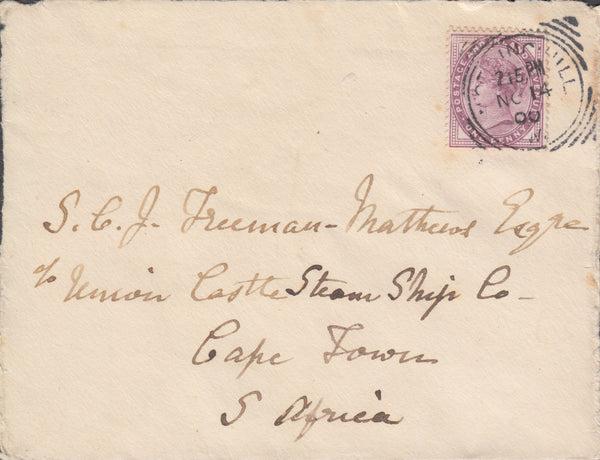 POSTAGE AND REVENUE
ONE PENNY
HILL
2.15 PM
NO 14
00
S. C. J. Freeman-Mathews Esqre
c/o Union Castle Steam Ship Co-
Cape Town
S Africa